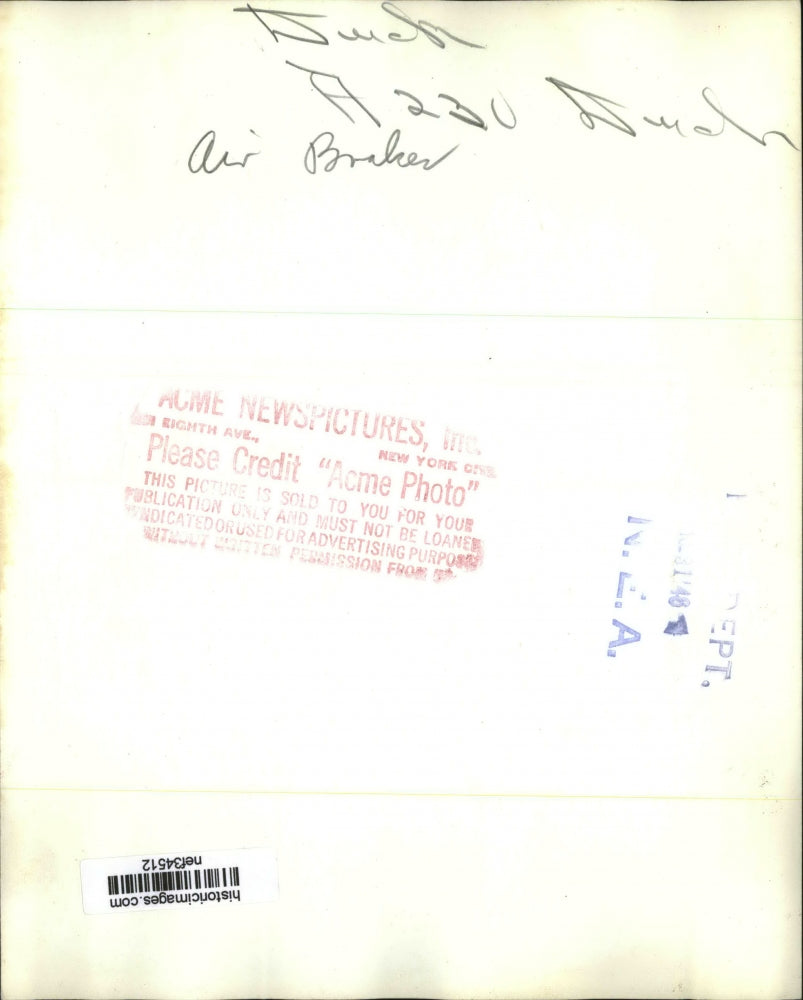 Truck
A 230 Truck
Air Brakes
ACME NEWSPICTURES, Inc.
EIGHTH AVE.,
NEW YORK CITY
Please Credit "Acme Photo"
THIS PICTURE IS SOLD TO YOU FOR YOUR
PUBLICATION ONLY AND MUST NOT BE LOANED
SYNDICATED OR USED FOR ADVERTISING PURPOSES
WITHOUT WRITTEN PERMISSION FROM US
N.E.A.
DEPT.
historicimages.com
nef34512